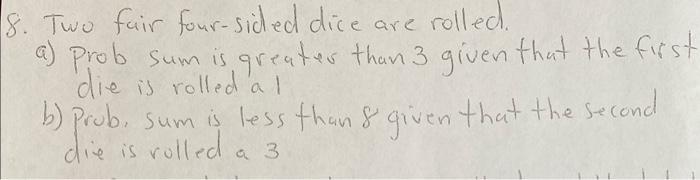 8. Two fair four-sided dice are rolled.
a) Prob sum is greater than 3 given that the first
die is rolled a 1
b) Prob. sum is less than 8 given that the second
die is rolled a 3